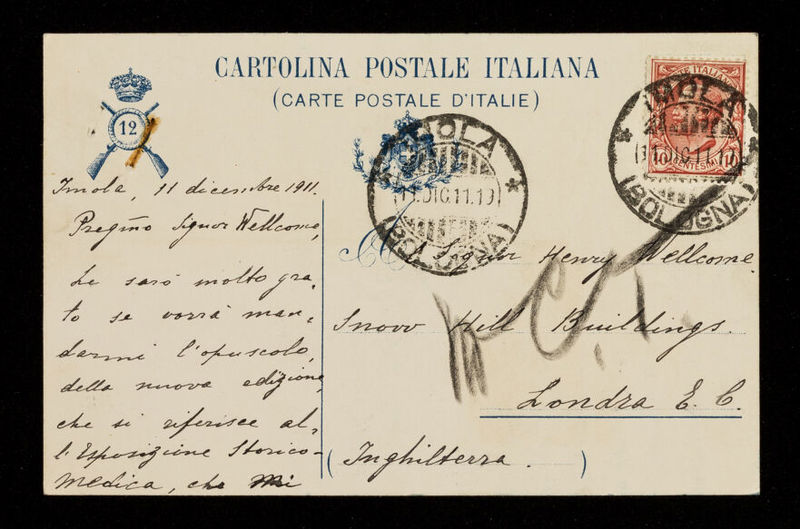 CARTOLINA POSTALE ITALIANA
(CARTE POSTALE D'ITALIE)
12
POSTE ITALIANE
10 CENTESIMI 10
IMOLA
11.DIC.11.19
(BOLOGNA)
IMOLA
11.DIC.11.19
(BOLOGNA)
Imola, 11 dicembre 1911.
Pregmo Signor Wellcome,
Le sarò molto gra,
to se vorrà man,
darmi l'opuscolo,
della nuova edizione,
che si riferisce al,
l'Esposizione Storico-
Medica, che mi
A Signor Henry Wellcome.
Snow Hill Buildings.
Londra E. C.
(Inghilterra.)